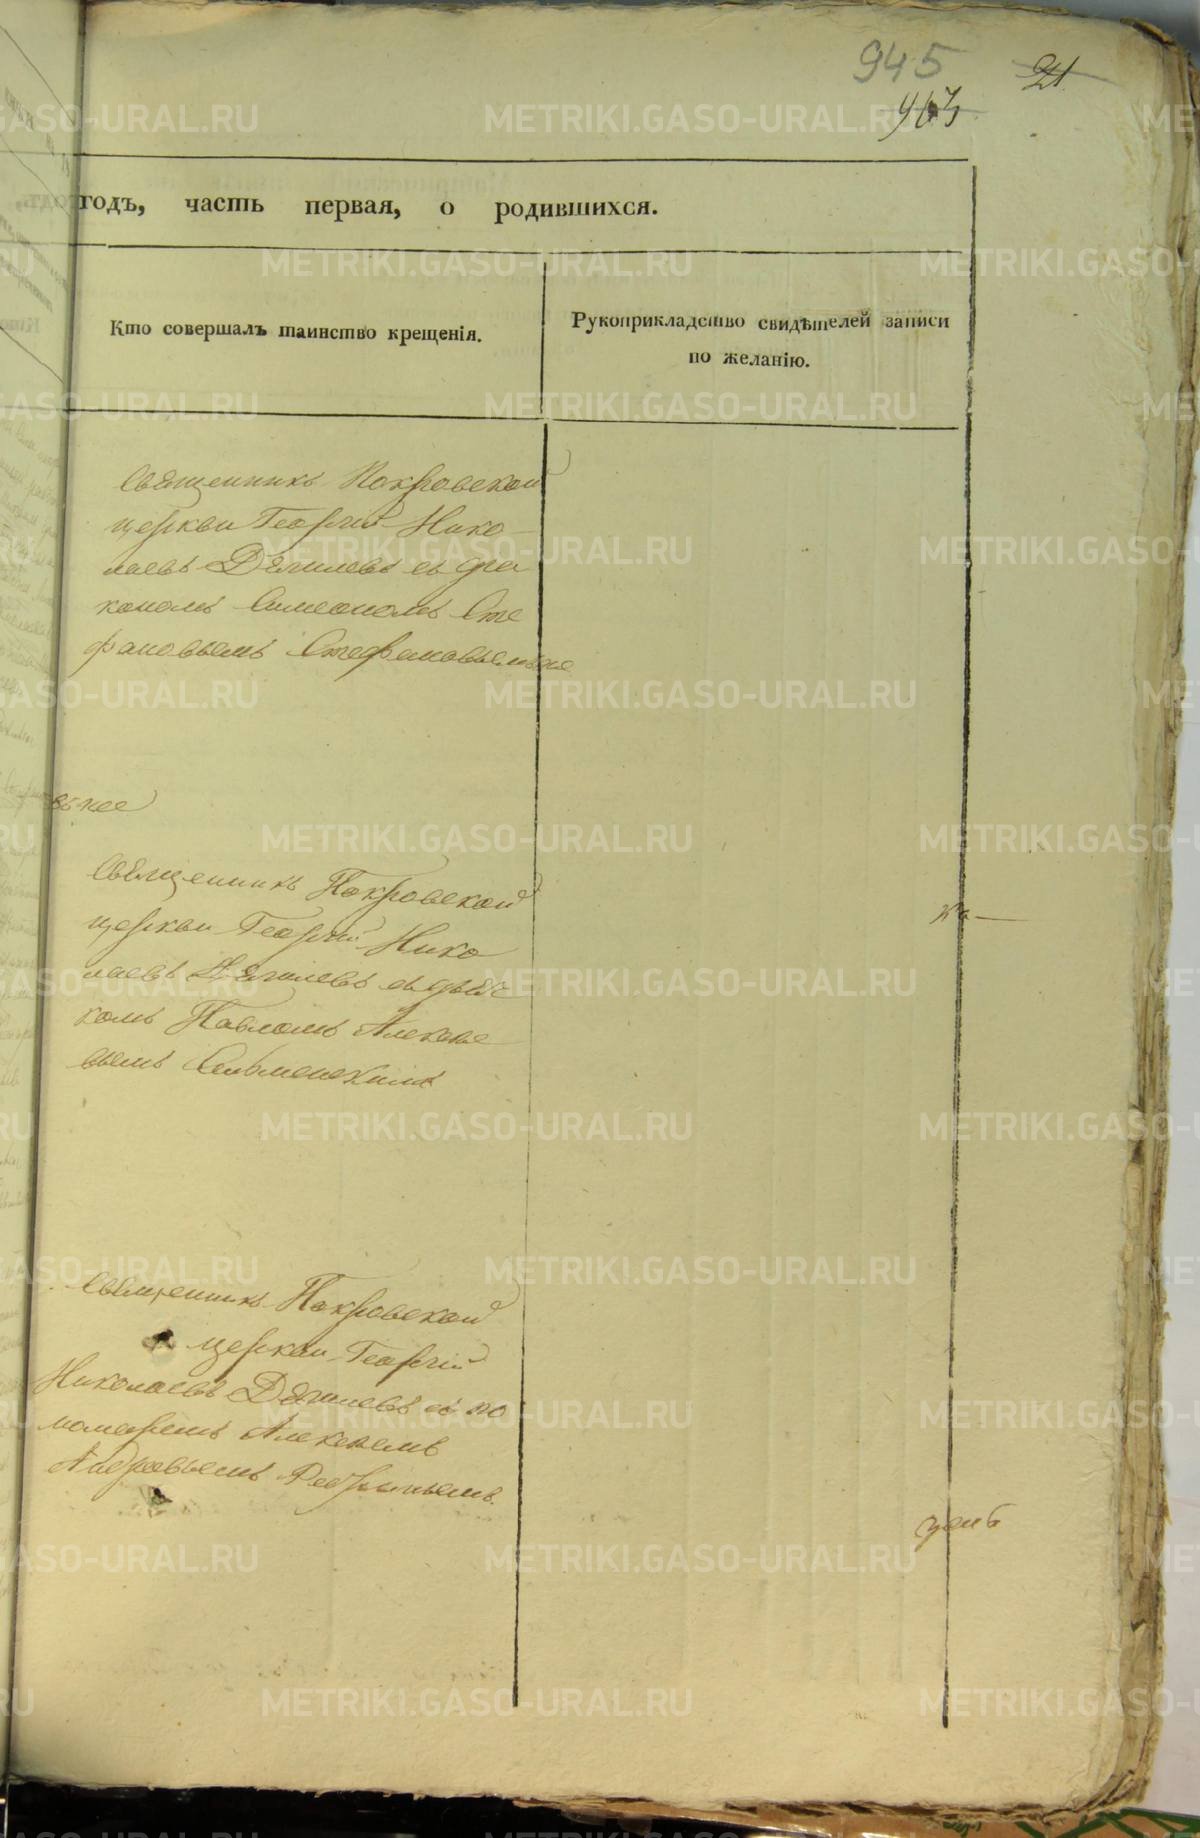 945
21
годъ, часть первая, о родившихся.
Кто совершалъ таинство крещенія.
Рукоприкладство свидѣтелей записи
по желанію.
Священникъ Покровской
церкви Георгій Нико
лаевъ Дягилевъ съ дiа
кономъ Симеономъ Сте
фановымъ Стефановымъ
Священникъ Покровской
церкви Георгій Нико
лаевъ Дягилевъ съ дьяч
комъ Павломъ Алексѣе
вымъ
Священникъ Покровской
церкви Георгій
Николаевъ Дягилевъ съ по
номаремъ Алексѣемъ
METRIKI.GASO-URAL.RU